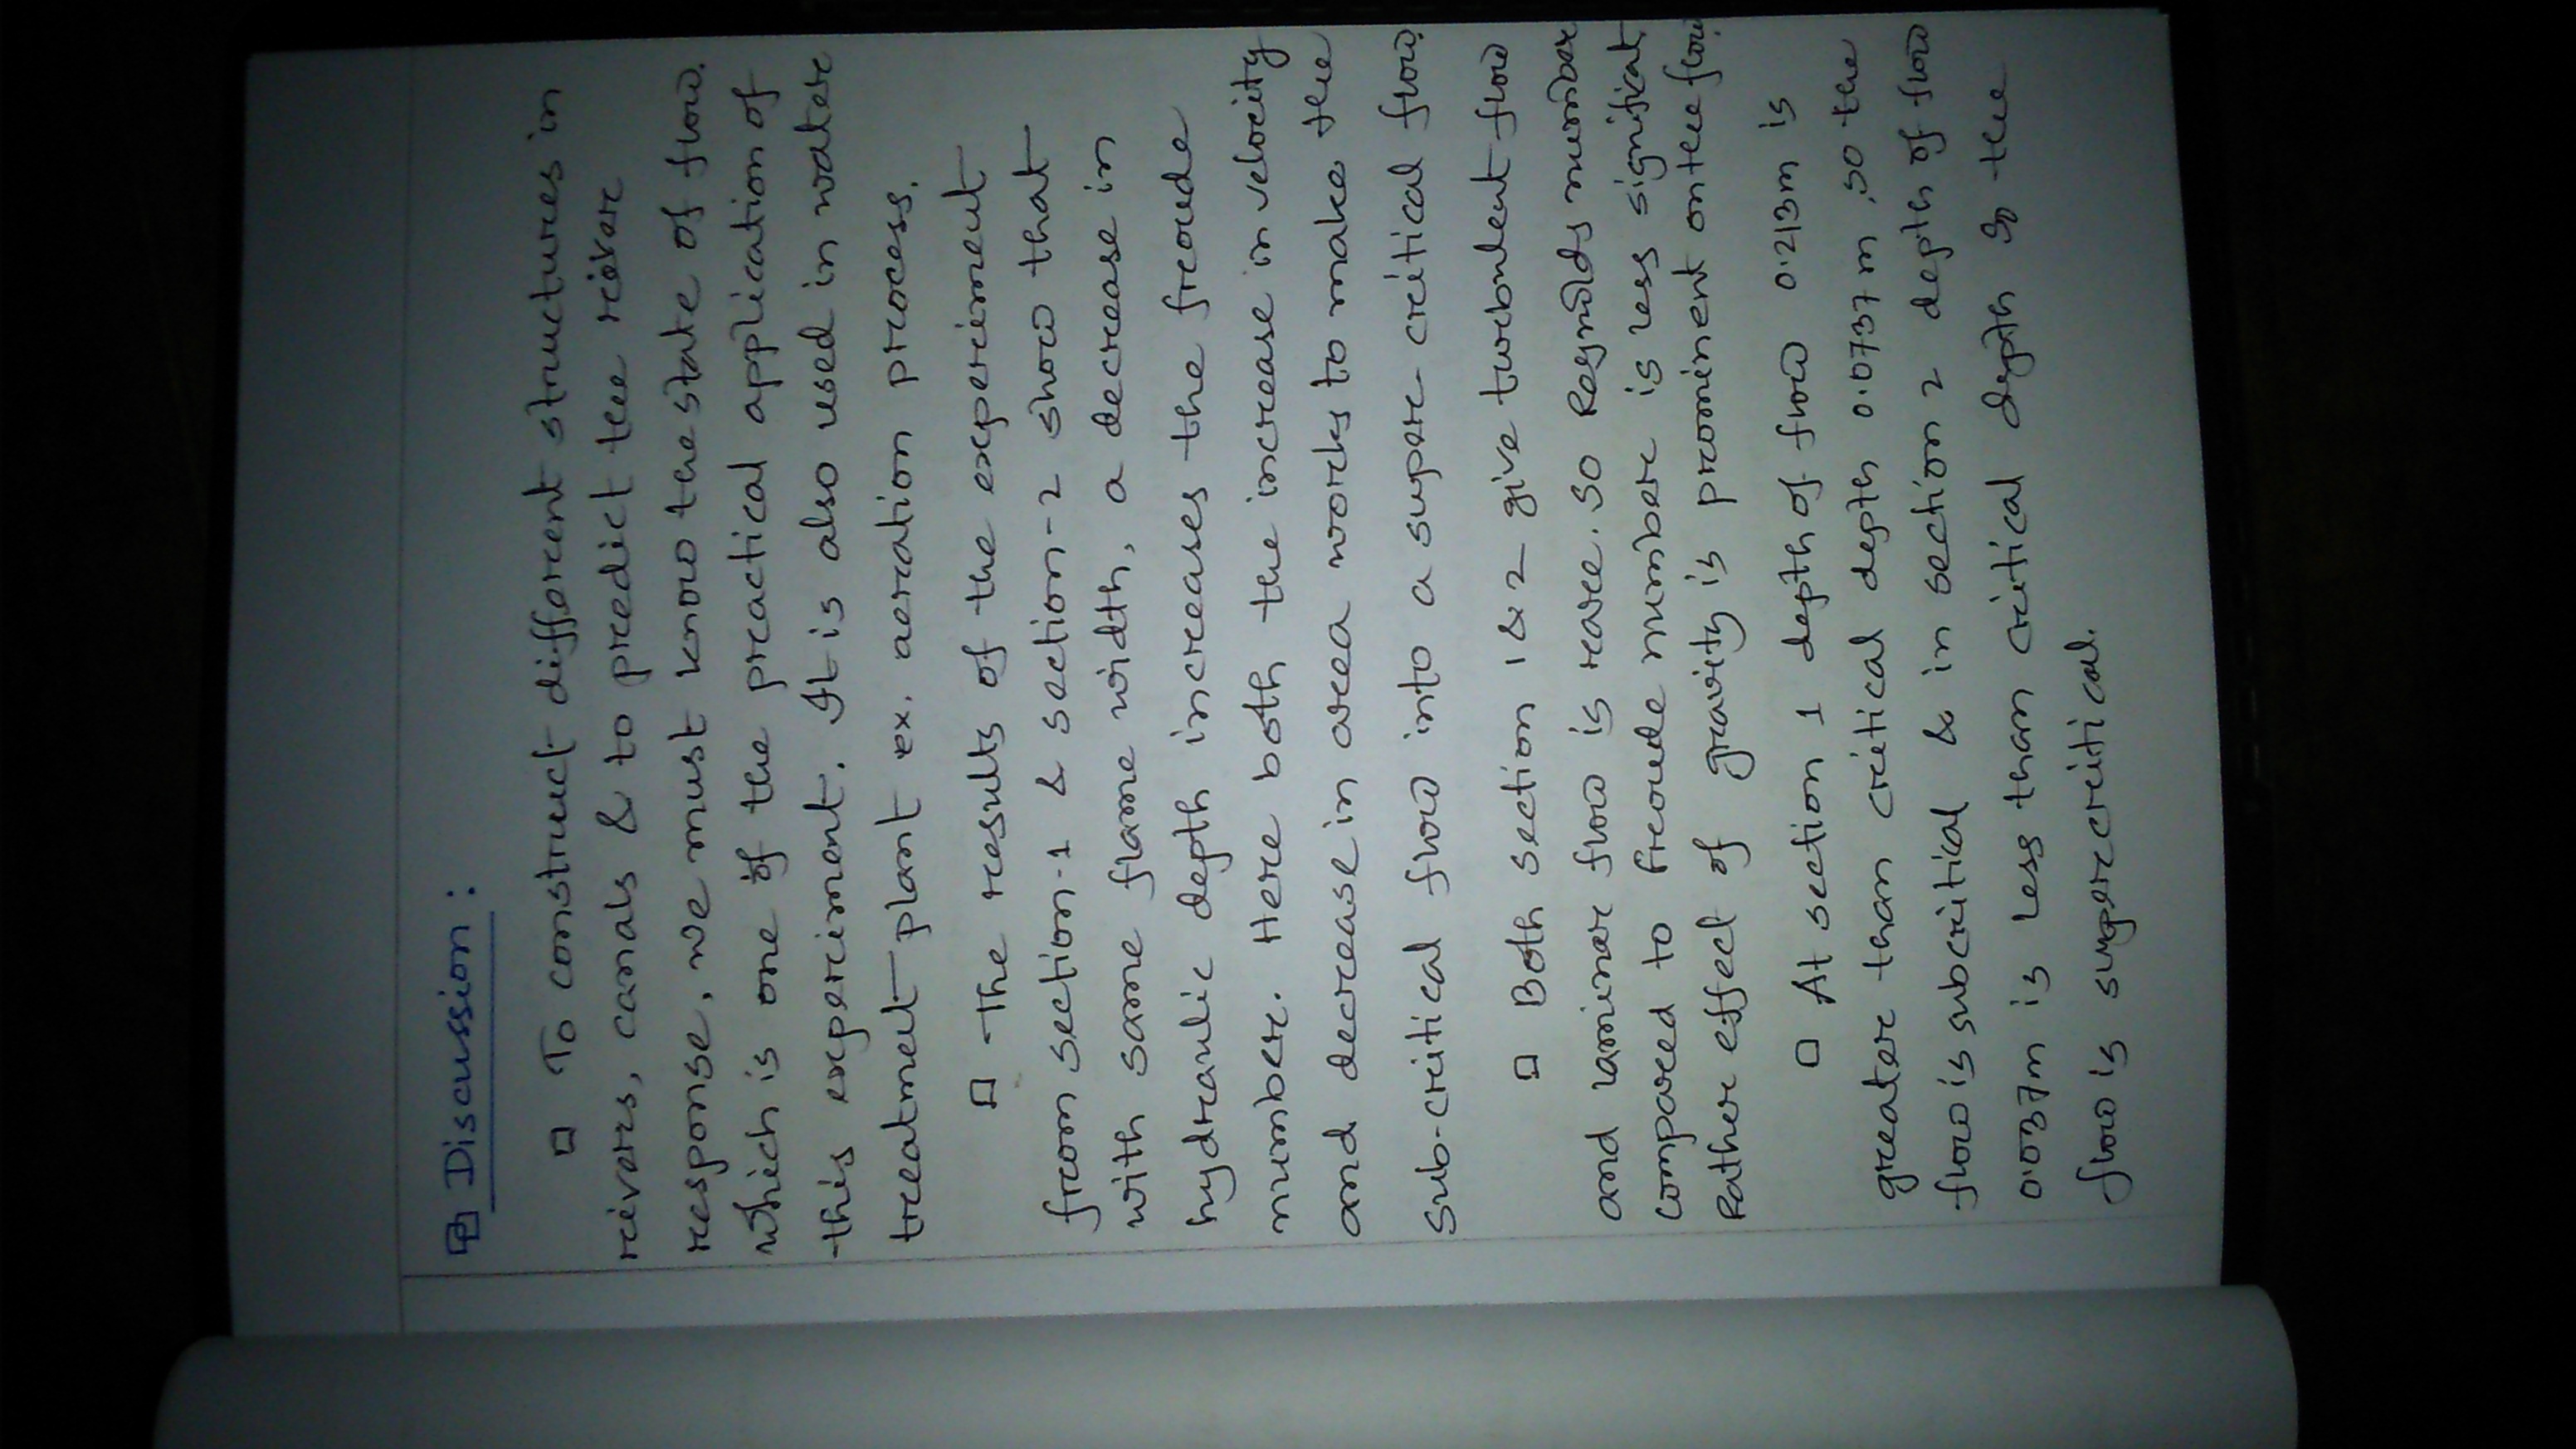 Discussion:
To construct different structures in
rivers, canals & to predict the river
response, we must know the state of flow.
which is one of the practical application of
this experiment. It is also used in water
treatment plant ex. aeration process.
The results of the experiment
from section-1 & section-2 show that
with same flame width, a decrease in
hydraulic depth increases the froude
number. Here both the increase in velocity
and decrease in area works to make the
sub-critical flow into a super-critical flow.
Both section 1 & 2 give turbulent flow
and laminar flow is rare. So Reynolds number
compared to froude number is less significat.
Rather effect of gravity is prominent on the flow.
At section 1 depth of flow 0.213m is
greater than critical depth 0.0737m, so the
flow is subcritical & in section 2 depth of flow
0.037m is less than critical depth so the
flow is supercritical.